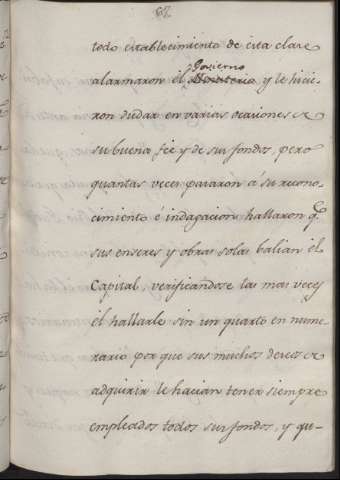 62
todo establecimiento de esta clase
Govierno
alarmaron el Ministerio y le hicie-
ron dudar en varias ocasiones de
su buena fee y de sus fondos, pero
quantas veces pasaron á su recono-
cimiento é indagacion hallaron q.e
sus enseres y obras solas balian el
Capital, verificandose las mas veces
el hallarle sin un quarto en nume-
rario por que sus muchos deseos de
adquirir le hacian tener siempre
empleados todos sus fondos, y qu-